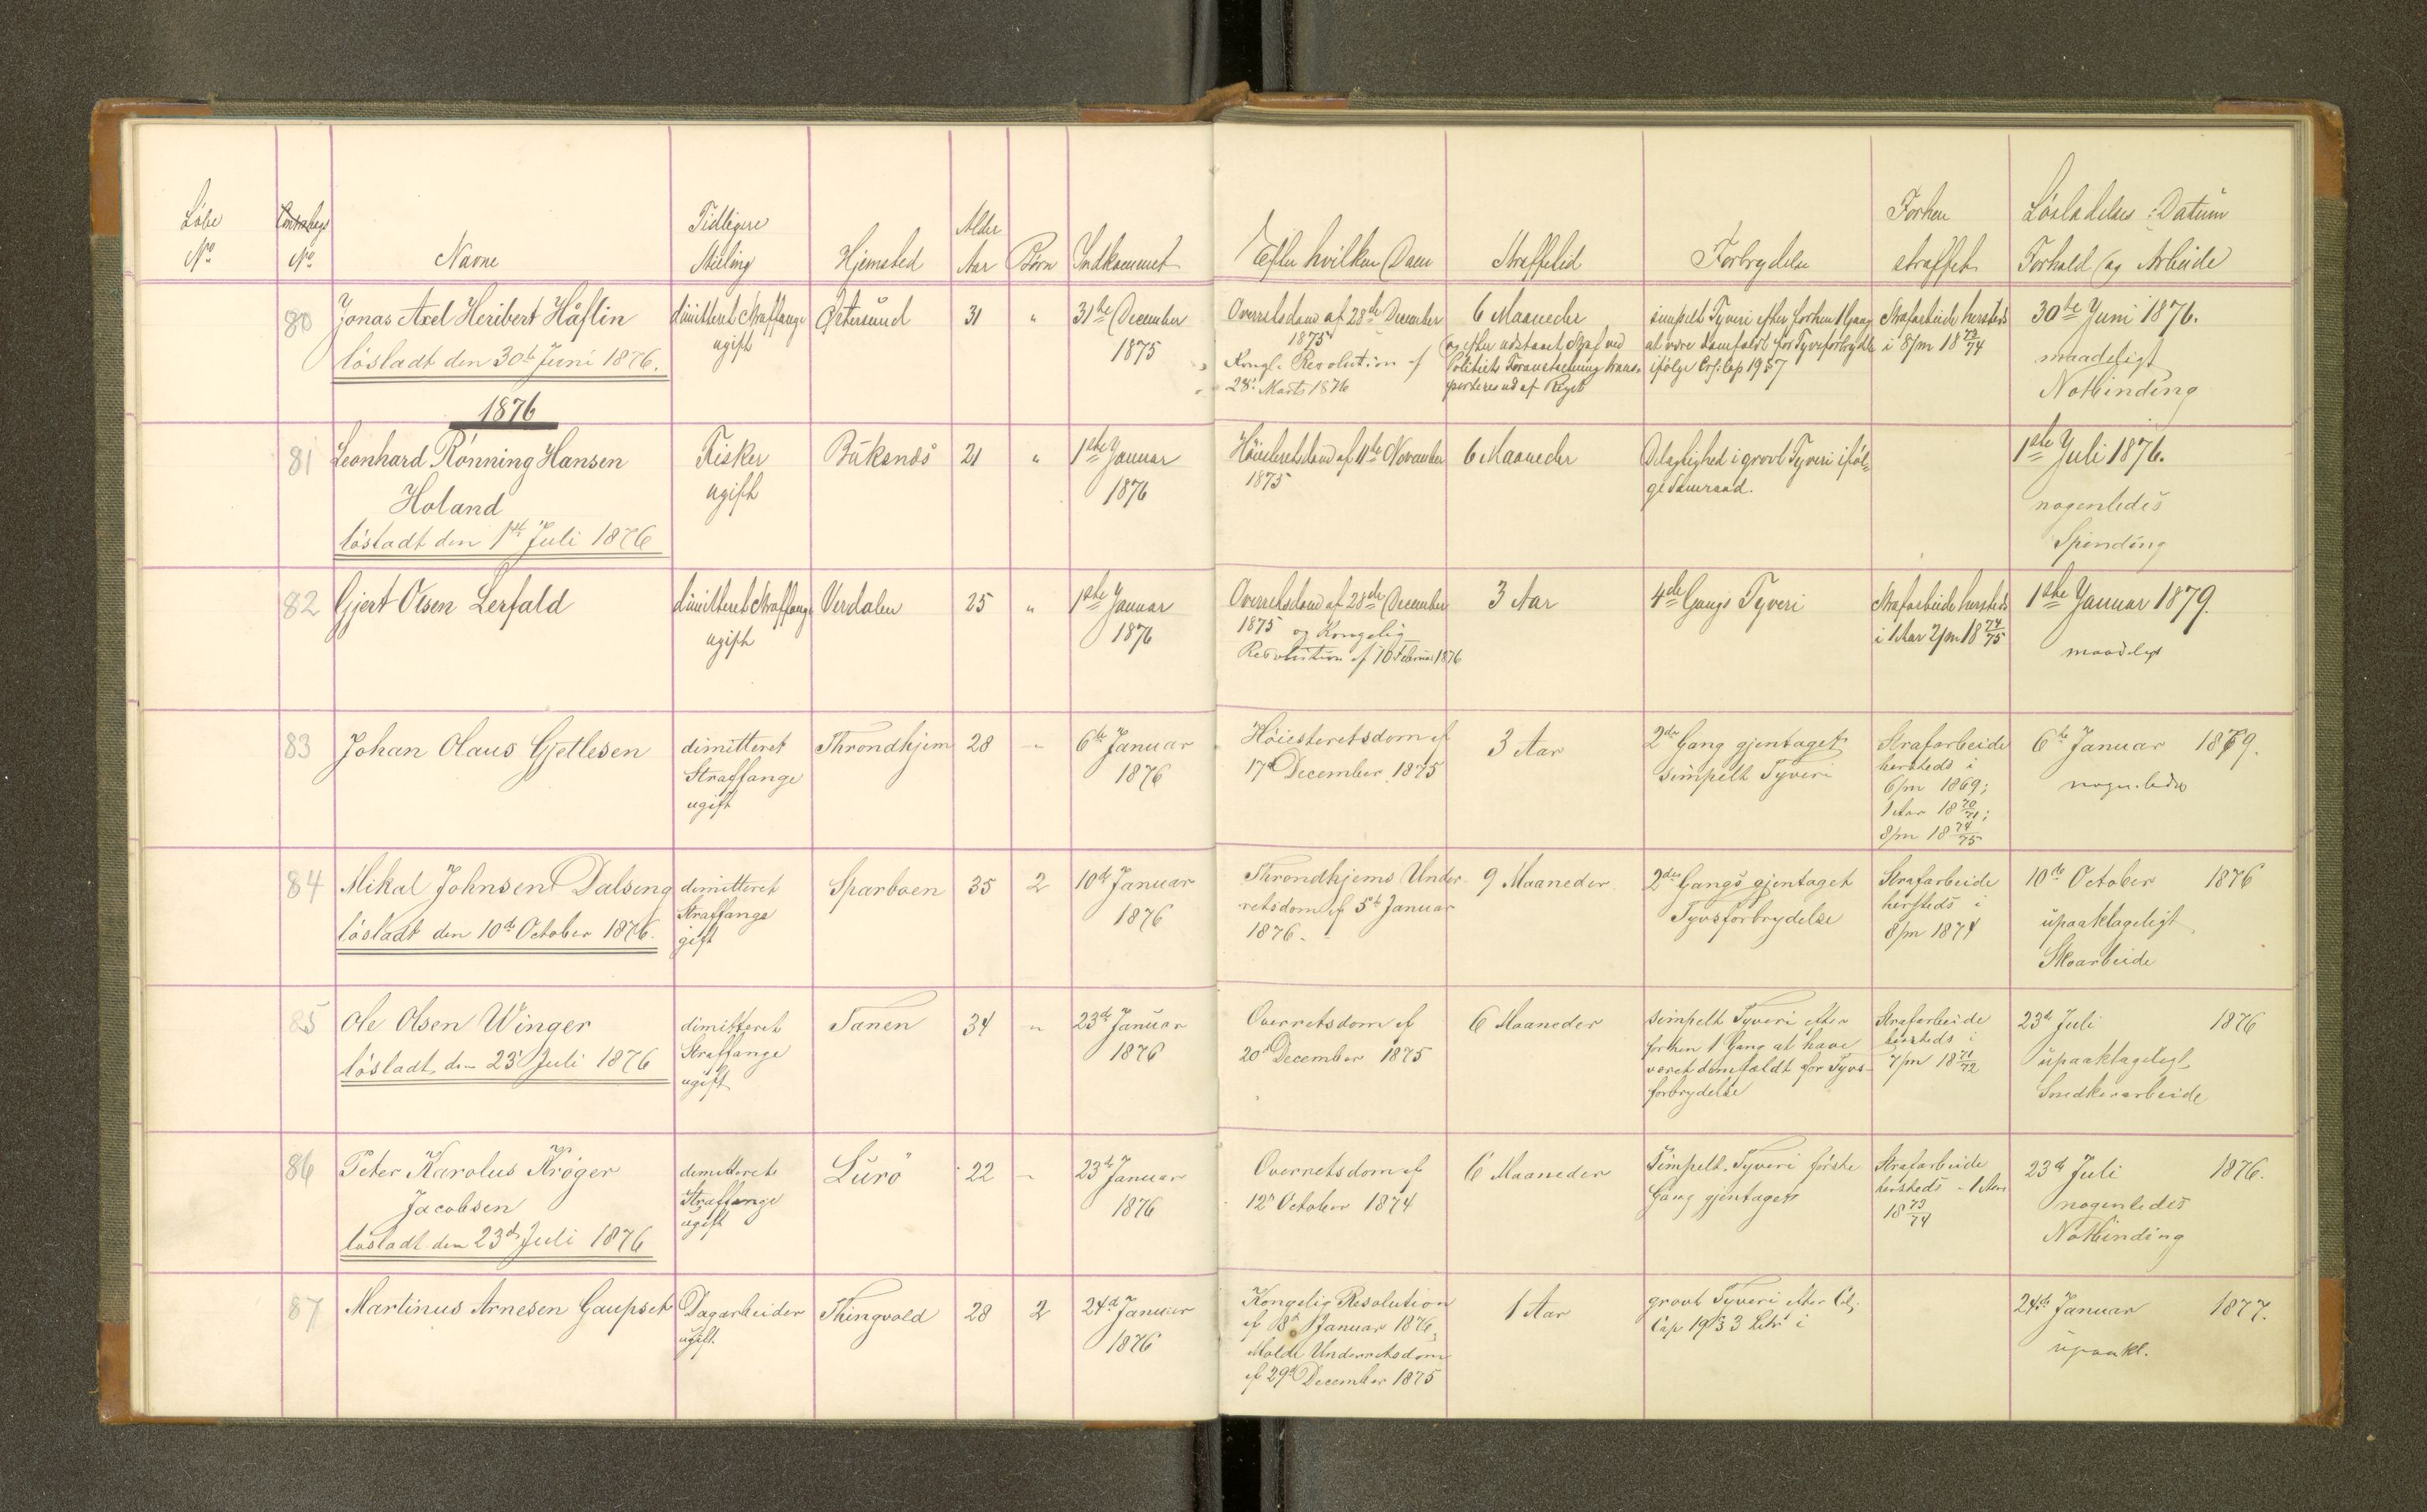 Løbe
No
No
Navne
Tidligere
Stilling
Hjemsted
Alder
Aar
Børn
Indkommet
Efter hvilken Dom
Straffetid
Forbrydelse
Forhen
straffet
Løsladelses: Datum
Forhold og Arbeide
80
Jonas Axel Heribert Håflin
løsladt den 30te Juni 1876.
dimitteret Straffange
ugift
Østersund
31
"
31te December
1875
Overretsdom af 28de December
1875
Kongl. Resolution af
28' Marts 1876
6 Maaneder
og efter udstaaet Straf ved
Politiets Foranstaltning trans-
porteres ud af Riget
simpelt Tyveri efter forhen 1 Gang
at være domfældt for Tyvsforbrydelse
ifølge Crf: Cap 19 § 7
Strafarbeide hersteds
i 8/m 18 73/74
30te Juni 1876.
maadeligt
Notbinding
1876
81
Leonhard Rønning Hansen
Holand
løsladt den 1ste Juli 1876
Fisker
ugift
Buksnæs
21
"
1ste Januar
1876
Høiesteretsdom af 11te November
1875
6 Maaneder
Delagtighed i grovt Tyveri iføl-
ge Samraad.
1ste Juli 1876.
nogenledes
Spinding
82
Gjert Olsen Lerfald
dimitteret Straffange
ugift
Verdalen
25
"
1ste Januar
1876
Overretsdom af 28de December
1875 og Kongelig
Resolution af 10 Februar 1876
3 Aar
4de Gangs Tyveri
Strafarbeide hersteds
i 1 Aar 2/m 18 74/75
1ste Januar 1879.
maadeligt
83
Johan Olaus Gjetlesen
dimitteret
Straffange
ugift
Throndhjem
28
"
6te Januar
1876
Høiesteretsdom af
17de December 1875
3 Aar
2de Gang gjentaget
simpelt Tyveri
Strafarbeide
hersteds i
6/m 1869;
1 Aar 18 70/71;
8/m 18 74/75
6te Januar 1879.
nogenledes
84
Mikal Johnsen Dalseng
løsladt den 10de October 1876.
dimitteret
Straffange
gift
Sparboen
35
2
10de Januar
1876
Throndhjems Under-
retsdom af 5te Januar
1876.
9 Maaneder
2den Gangs gjentaget
Tyvsforbrydelse
Strafarbeide
hersteds i
8/m 1874
10de October 1876
upaaklageligt
Skoarbeide
85
Ole Olsen Winger
løsladt den 23' Juli 1876
dimitteret
Straffange
ugift
Tanen
34
"
23de Januar
1876
Overretsdom af
20de December 1875
6 Maaneder
simpelt Tyveri efter
forhen 1 Gang at have
været domfældt for Tyvs-
forbrydelse
Strafarbeide
hersteds i
7/m 18 71/72
23de Juli 1876
upaaklageligt
Snedkerarbeide
86
Peter Karolus Krøger
Jacobsen
løsladt den 23de Juli 1876
dimitteret
Straffange
ugift
Lurö
22
"
23de Januar
1876
Overretsdom af
12te October 1874
6 Maaneder
Simpelt Tyveri første
Gang gjentaget
Strafarbeide
hersteds - 1 Aar
18 73/74
23de Juli 1876.
nogenledes
Notbinding
87
Martinus Arnesen Gaupset
Dagarbeider
ugift
Thingvold
28
2
24de Januar
1876
Kongelig Resolution
af 8de Januar 1876,
Molde Underretsdom
af 29de December 1875
1 Aar
grovt Tyveri efter
Cap 19 § 3 Litr i
24de Januar 1877.
upaakl.